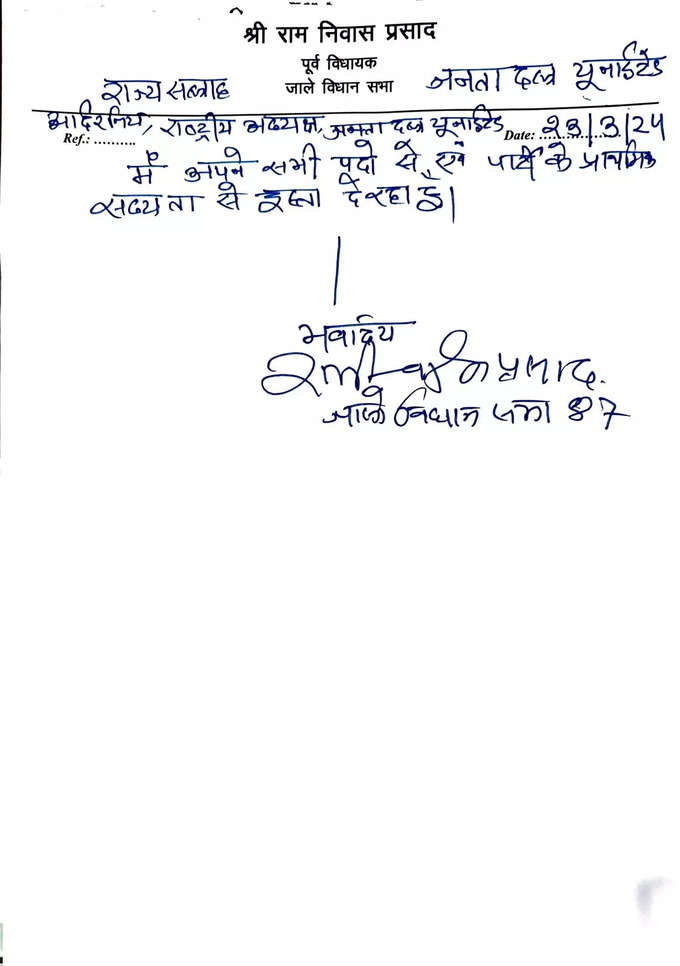 श्री राम निवास प्रसाद
पूर्व विधायक
जाले विधान सभा
राज्य सलाह जनता दल यूनाईटेड
आदरनिय, राष्ट्रीय अध्यक्ष, जनता दल यूनाईटेड
Ref.: .......... Date: 23/3/24
मैं अपने सभी पदो से, एवं पार्टी के प्राथमिक
सदस्यता से इस्ता दे रहा हूँ।
भवदिय
प्रसाद.
जाले विधान सभा 87